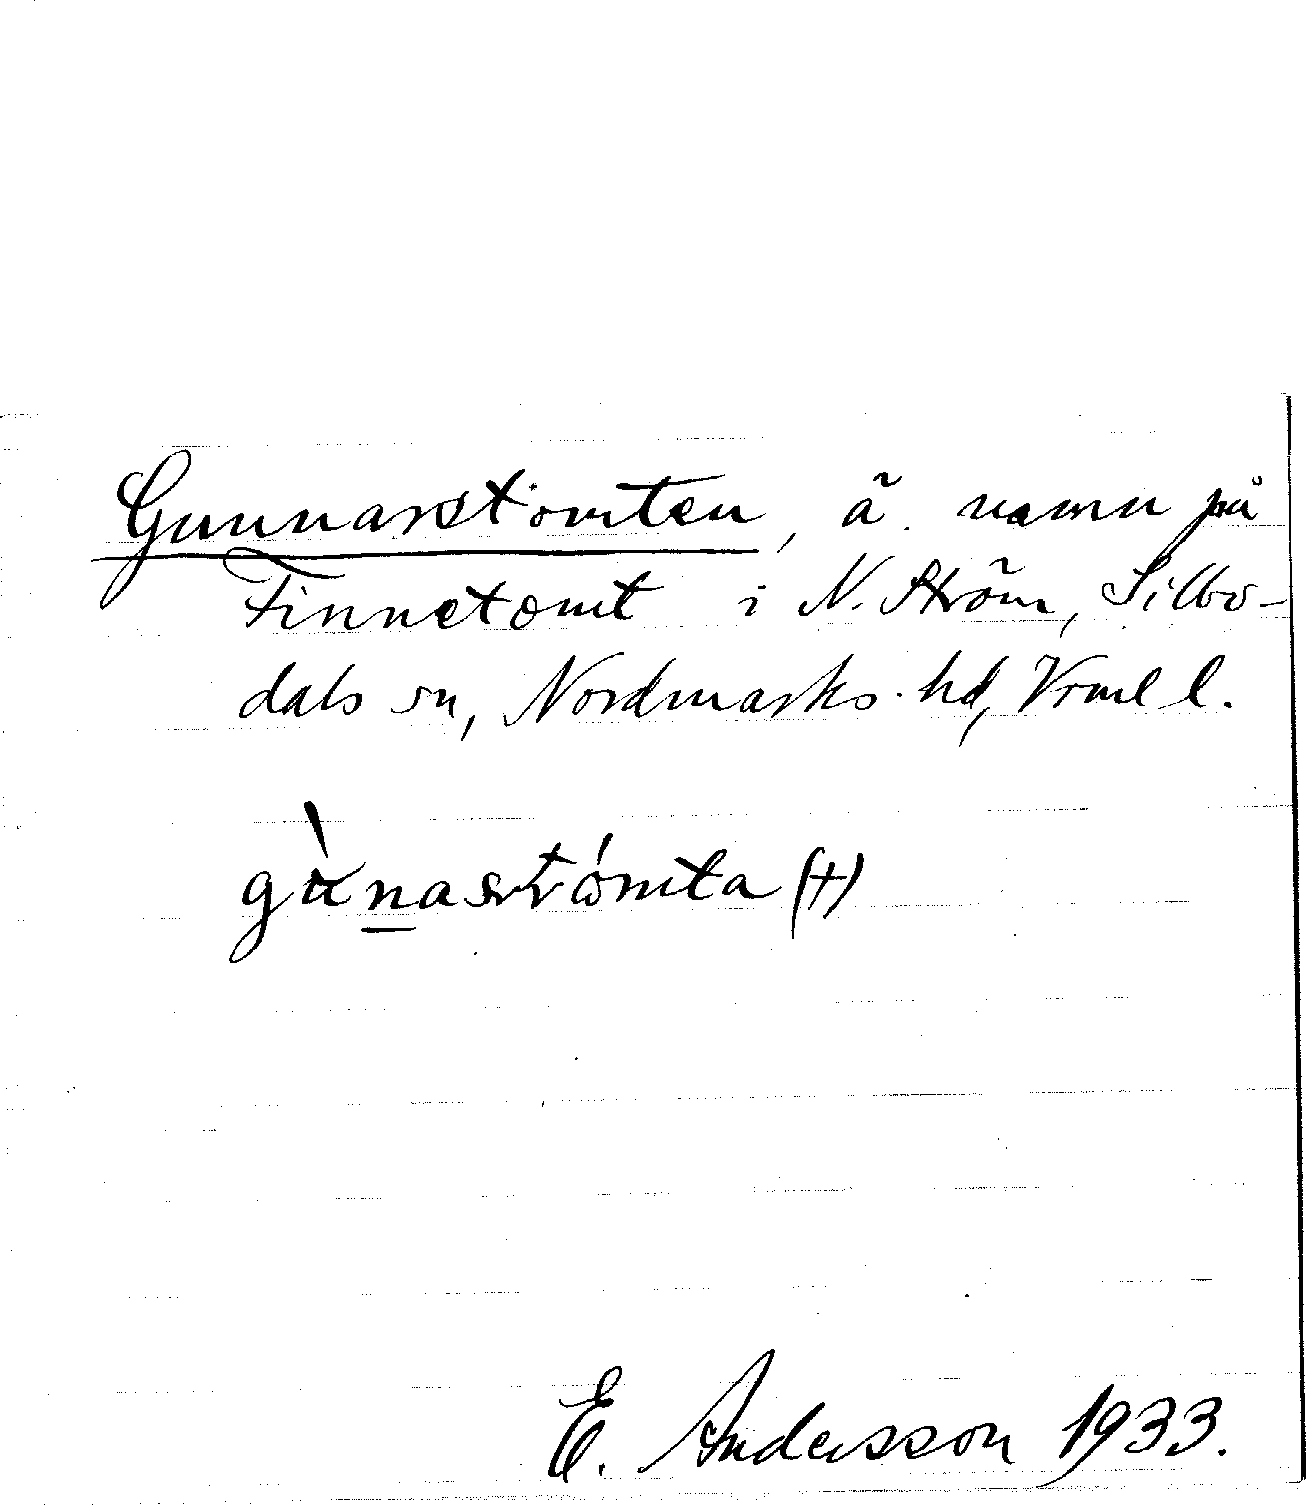 Gunnarstomten, ä. namn på
Finnetomt i N. Ström, Silbo-
dals sn, Nordmarks hd, Vrml l.
(+)
E. Andersson 1933.